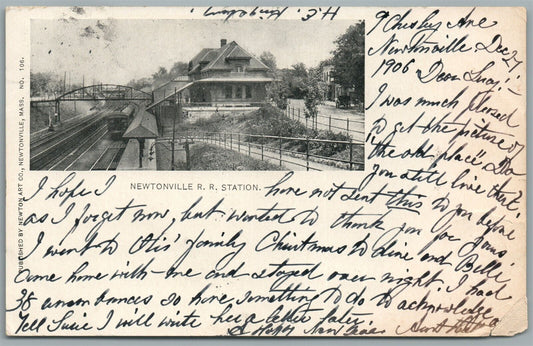 9 Chesby Ave
Newtonville Dec 27
1906 Dear Lucy!-
I was much pleased
to get the picture of
"the old place," Do
you still live there?
I hope I have not sent this to you before
as I forget now, but wanted to thank you for yours.
I went to Otis' family Christmas to dine and Belle
Came home with me and stayed over night. I had
38 remembrances so have something to do to acknowledge
Tell Susie I will write her a letter later.
A Happy New Year Aunt
NEWTONVILLE R. R. STATION.
PUBLISHED BY NEWTON ART CO., NEWTONVILLE, MASS. NO. 106.